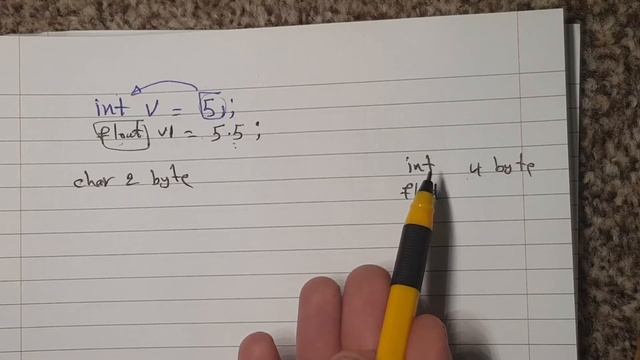 int v = 5;
float v1 = 5.5;
char 2 byte
int 4 byte